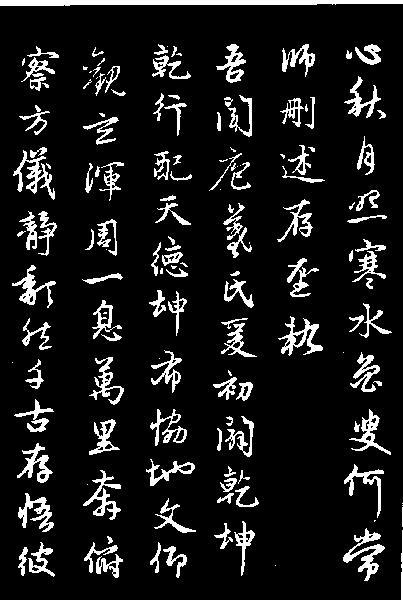 心秋月照寒水魯叟何常
師刪述存聖軌
吾聞庖羲氏爰初闢乾坤
乾行配天德坤布協地文仰
觀玄渾周一息萬里奔俯
察方儀靜頹然千古存悟彼